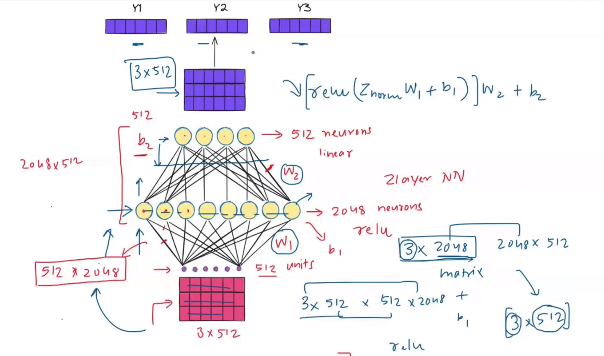 Y1 Y2 Y3
3 × 512
[relu(Znorm W1 + b1)] W2 + b2
512
b2
512 neurons
linear
2048 × 512
W2
2 layer NN
2048 neurons
relu
W1
b1
3 × 2048 2048 × 512
matrix
512 × 2048
512 units
3 × 512 × 512 × 2048 +
b1
[3 × 512]
3 × 512
relu